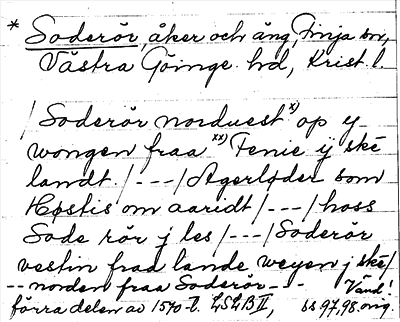 * Soderör, åker och äng, Finja sn,
Västra Göinge hd, Krist. l.
/ Soderör norduest x) op y
wongen fraa xx) Fenie ij skè
landt /---/ Agerløder som
Høstis om aaridt /---/ hoss
Sode rör j les /---/ Soderör
vestin fraa lande weyen j skè/
--norden fraa Soderör--- Vänd!
förra delen av 1570-t. LSLB II, ss 97, 98. orig.